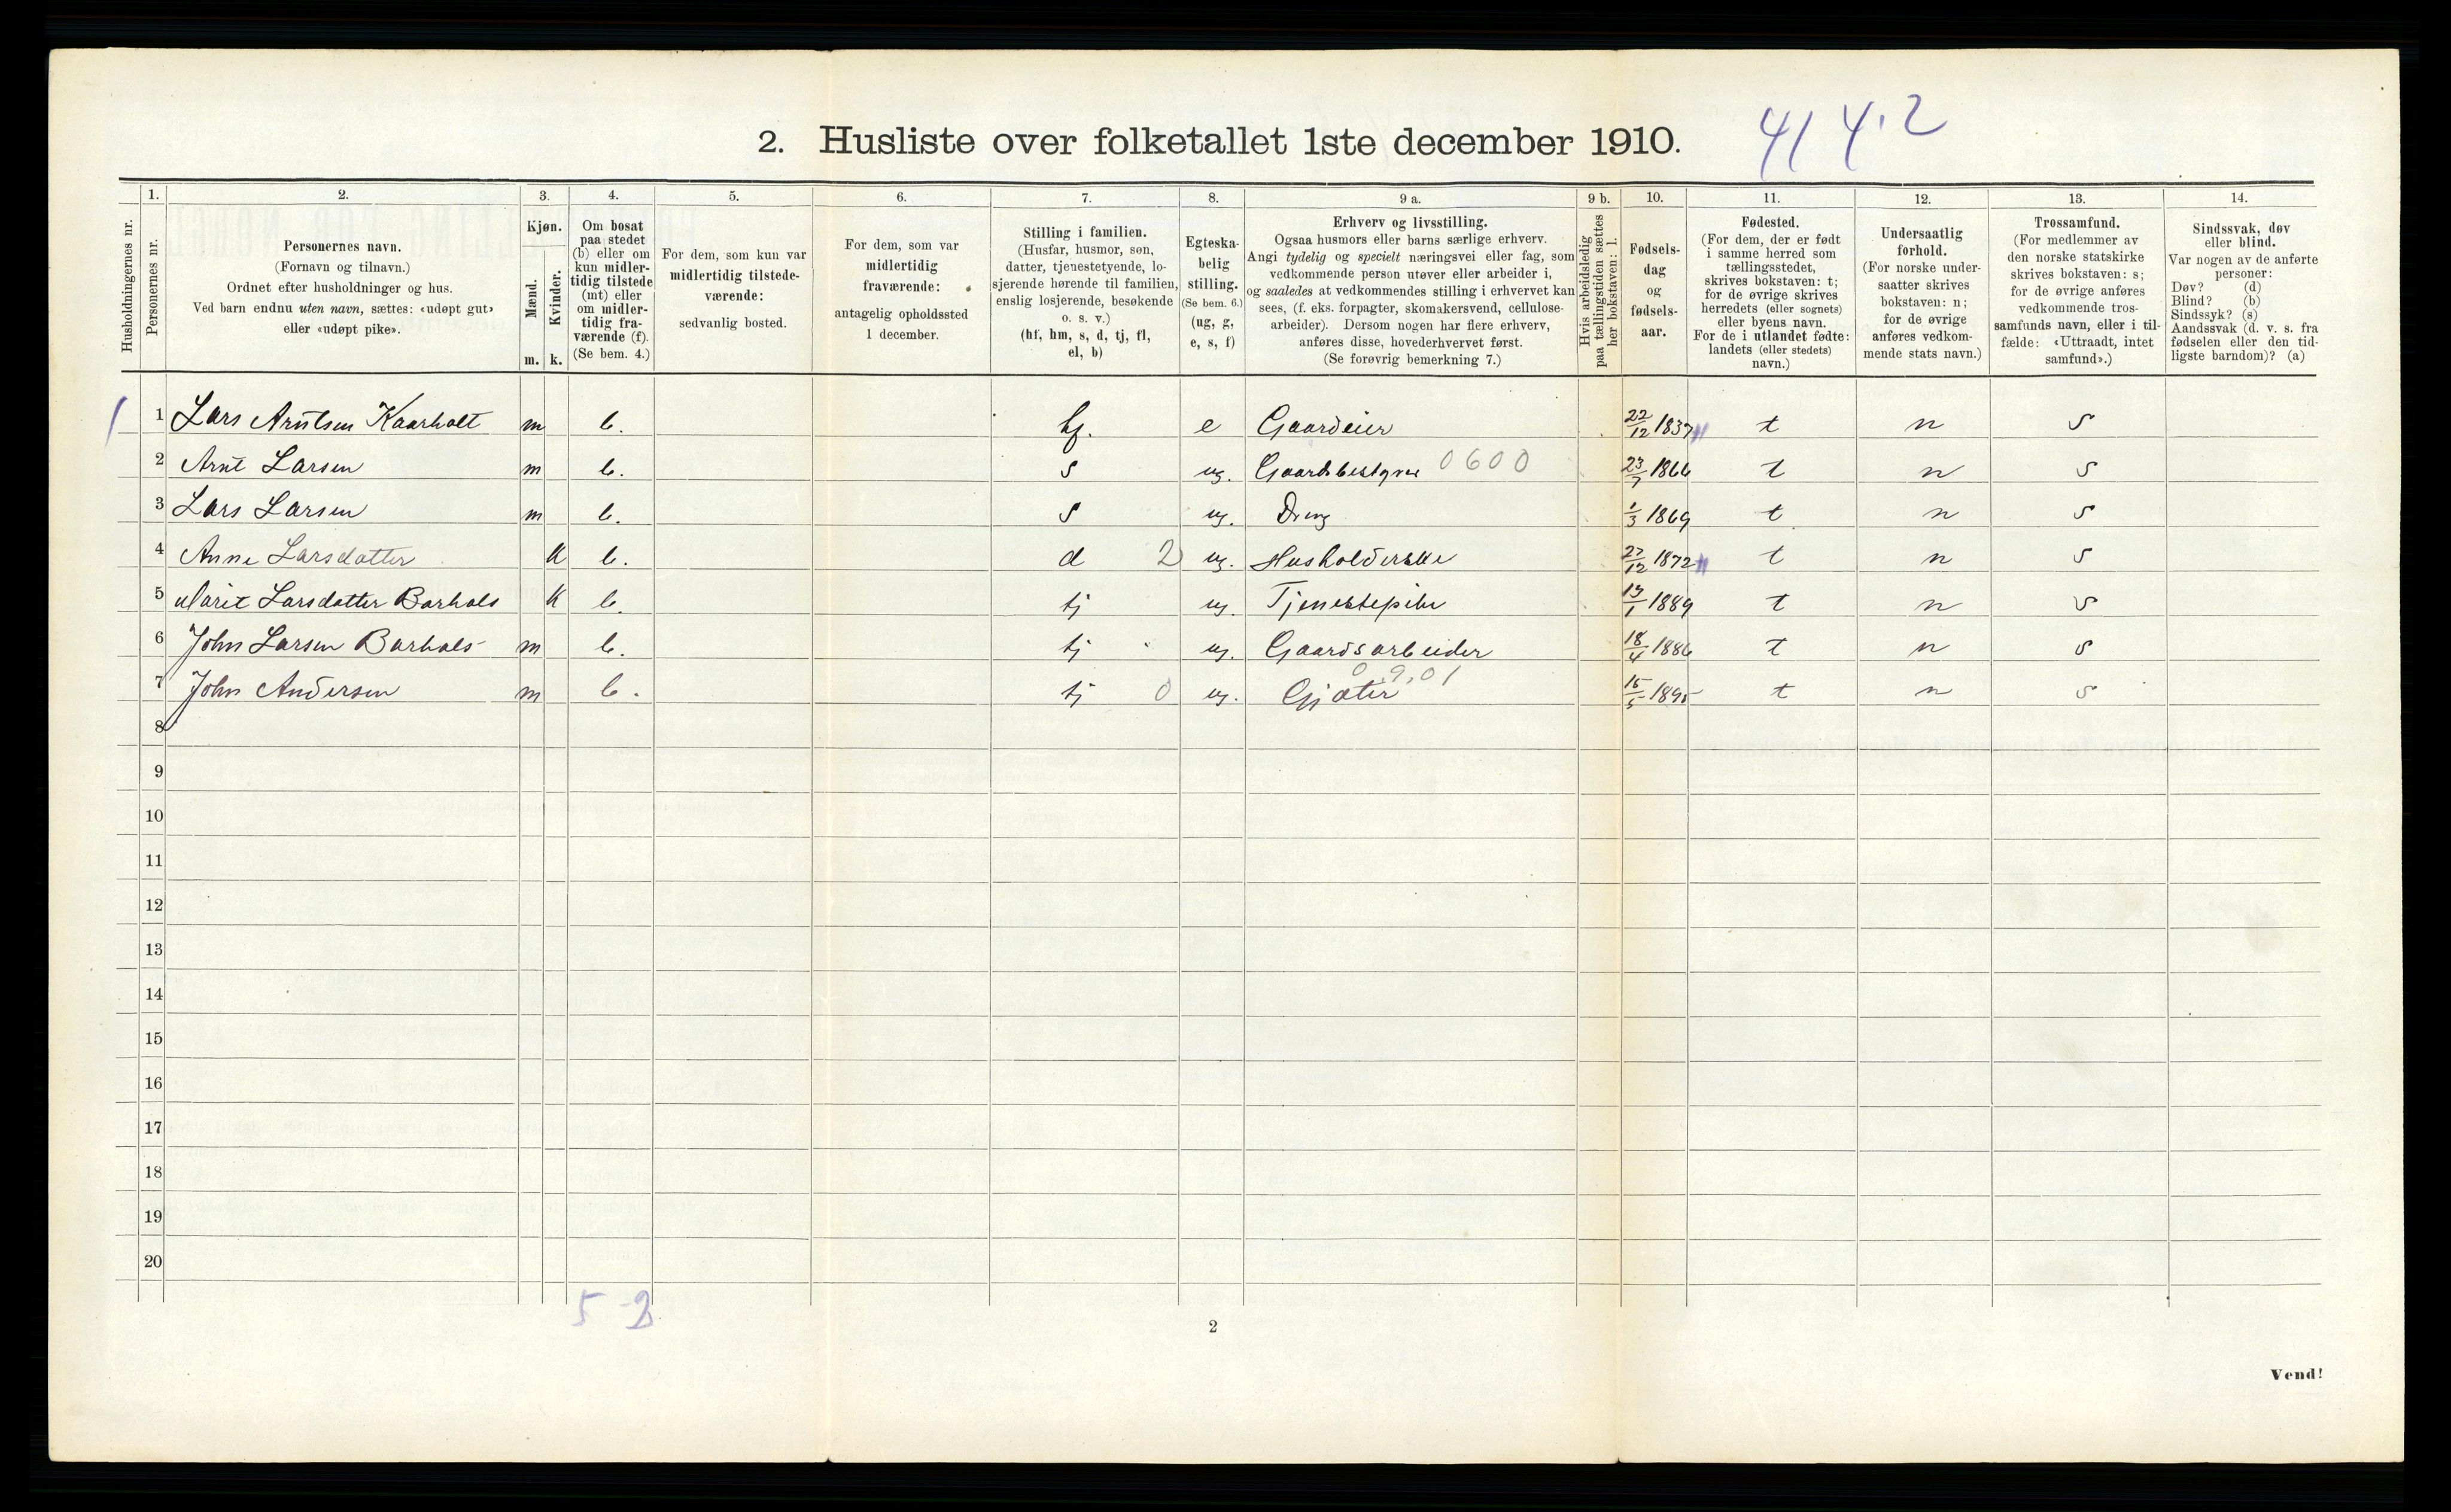 2. Husliste over folketallet 1ste december 1910. 41 4.2
1. 2. 3. 4. 5. 6. 7. 8. 9 a. 9 b. 10. 11. 12. 13. 14.
Husholdningernes nr.
Personernes nr.
Personernes navn.
(Fornavn og tilnavn.)
Ordnet efter husholdninger og hus.
Ved barn endnu uten navn, sættes: «udøpt gut»
eller «udøpt pike».
Kjøn.
Mænd.
Kvinder.
m. k.
Om bosat
paa stedet
(b) eller om
kun midler-
tidig tilstede
(mt) eller
om midler-
tidig fra-
værende (f).
(Se bem. 4.)
For dem, som kun var
midlertidig tilstede-
værende:
sedvanlig bosted.
For dem, som var
midlertidig
fraværende:
antagelig opholdssted
1 december.
Stilling i familien.
(Husfar, husmor, søn,
datter, tjenestetyende, lo-
sjerende hørende til familien,
enslig losjerende, besøkende
o. s. v.)
(hf, hm, s, d, tj, fl,
el, b)
Egteska-
belig
stilling.
(Se bem. 6.)
(ug, g,
e, s, f)
Erhverv og livsstilling.
Ogsaa husmors eller barns særlige erhverv.
Angi tydelig og specielt næringsvei eller fag, som
vedkommende person utøver eller arbeider i,
og saaledes at vedkommendes stilling i erhvervet kan
sees, (f. eks. forpagter, skomakersvend, cellulose-
arbeider). Dersom nogen har flere erhverv,
anføres disse, hovederhvervet først.
(Se forøvrig bemerkning 7.)
Hvis arbeidsledig
paa tællingstiden sættes
her bokstaven: l.
Fødsels-
dag
og
fødsels-
aar.
Fødested.
(For dem, der er født
i samme herred som
tællingsstedet,
skrives bokstaven: t;
for de øvrige skrives
herredets (eller sognets)
eller byens navn.
For de i utlandet fødte:
landets (eller stedets)
navn.)
Undersaatlig
forhold.
(For norske under-
saatter skrives
bokstaven: n;
for de øvrige
anføres vedkom-
mende stats navn.)
Trossamfund.
(For medlemmer av
den norske statskirke
skrives bokstaven: s;
for de øvrige anføres
vedkommende tros-
samfunds navn, eller i til-
fælde: «Uttraadt, intet
samfund».)
Sindssvak, døv
eller blind.
Var nogen av de anførte
personer:
Døv? (d)
Blind? (b)
Sindssyk? (s)
Aandssvak (d. v. s. fra
fødselen eller den tid-
ligste barndom)? (a)
1 1 Lars Arntsen Kaarholt m b. hf. e Gaardeier 22/12 1837 t n s
2 Arnt Larsen m b. s ug. Gaardsbestyrer 0600 23/7 1866 t n s
3 Lars Larsen m b. s ug. Dreng 1/3 1869 t n s
4 Anne Larsdatter k b. d 2 ug. Husholderske 27/12 1872 t n s
5 Marit Larsdatter Barhals k b. tj ug. Tjenestepike 13/1 1889 t n s
6 John Larsen Barhals m b. tj ug. Gaardsarbeider 18/4 1886 t n s
0.9.01
7 John Andersen m b. tj 0 ug. Gjæter 15/5 1895 t n s
8
9
10
11
12
13
14
15
16
17
18
19
20
5-2
2
Vend!